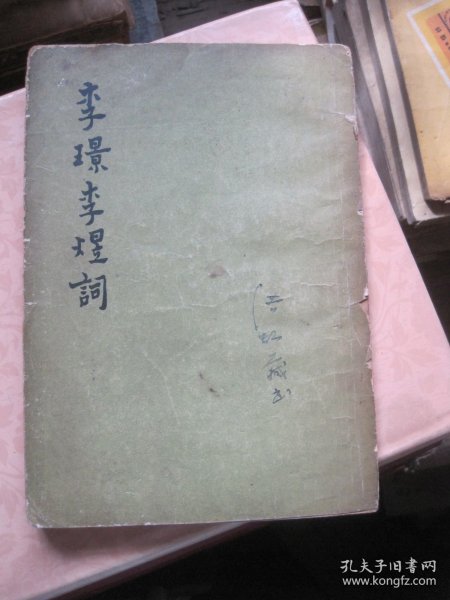 李璟李煜詞
藏书
孔夫子旧书网
www.kongfz.com